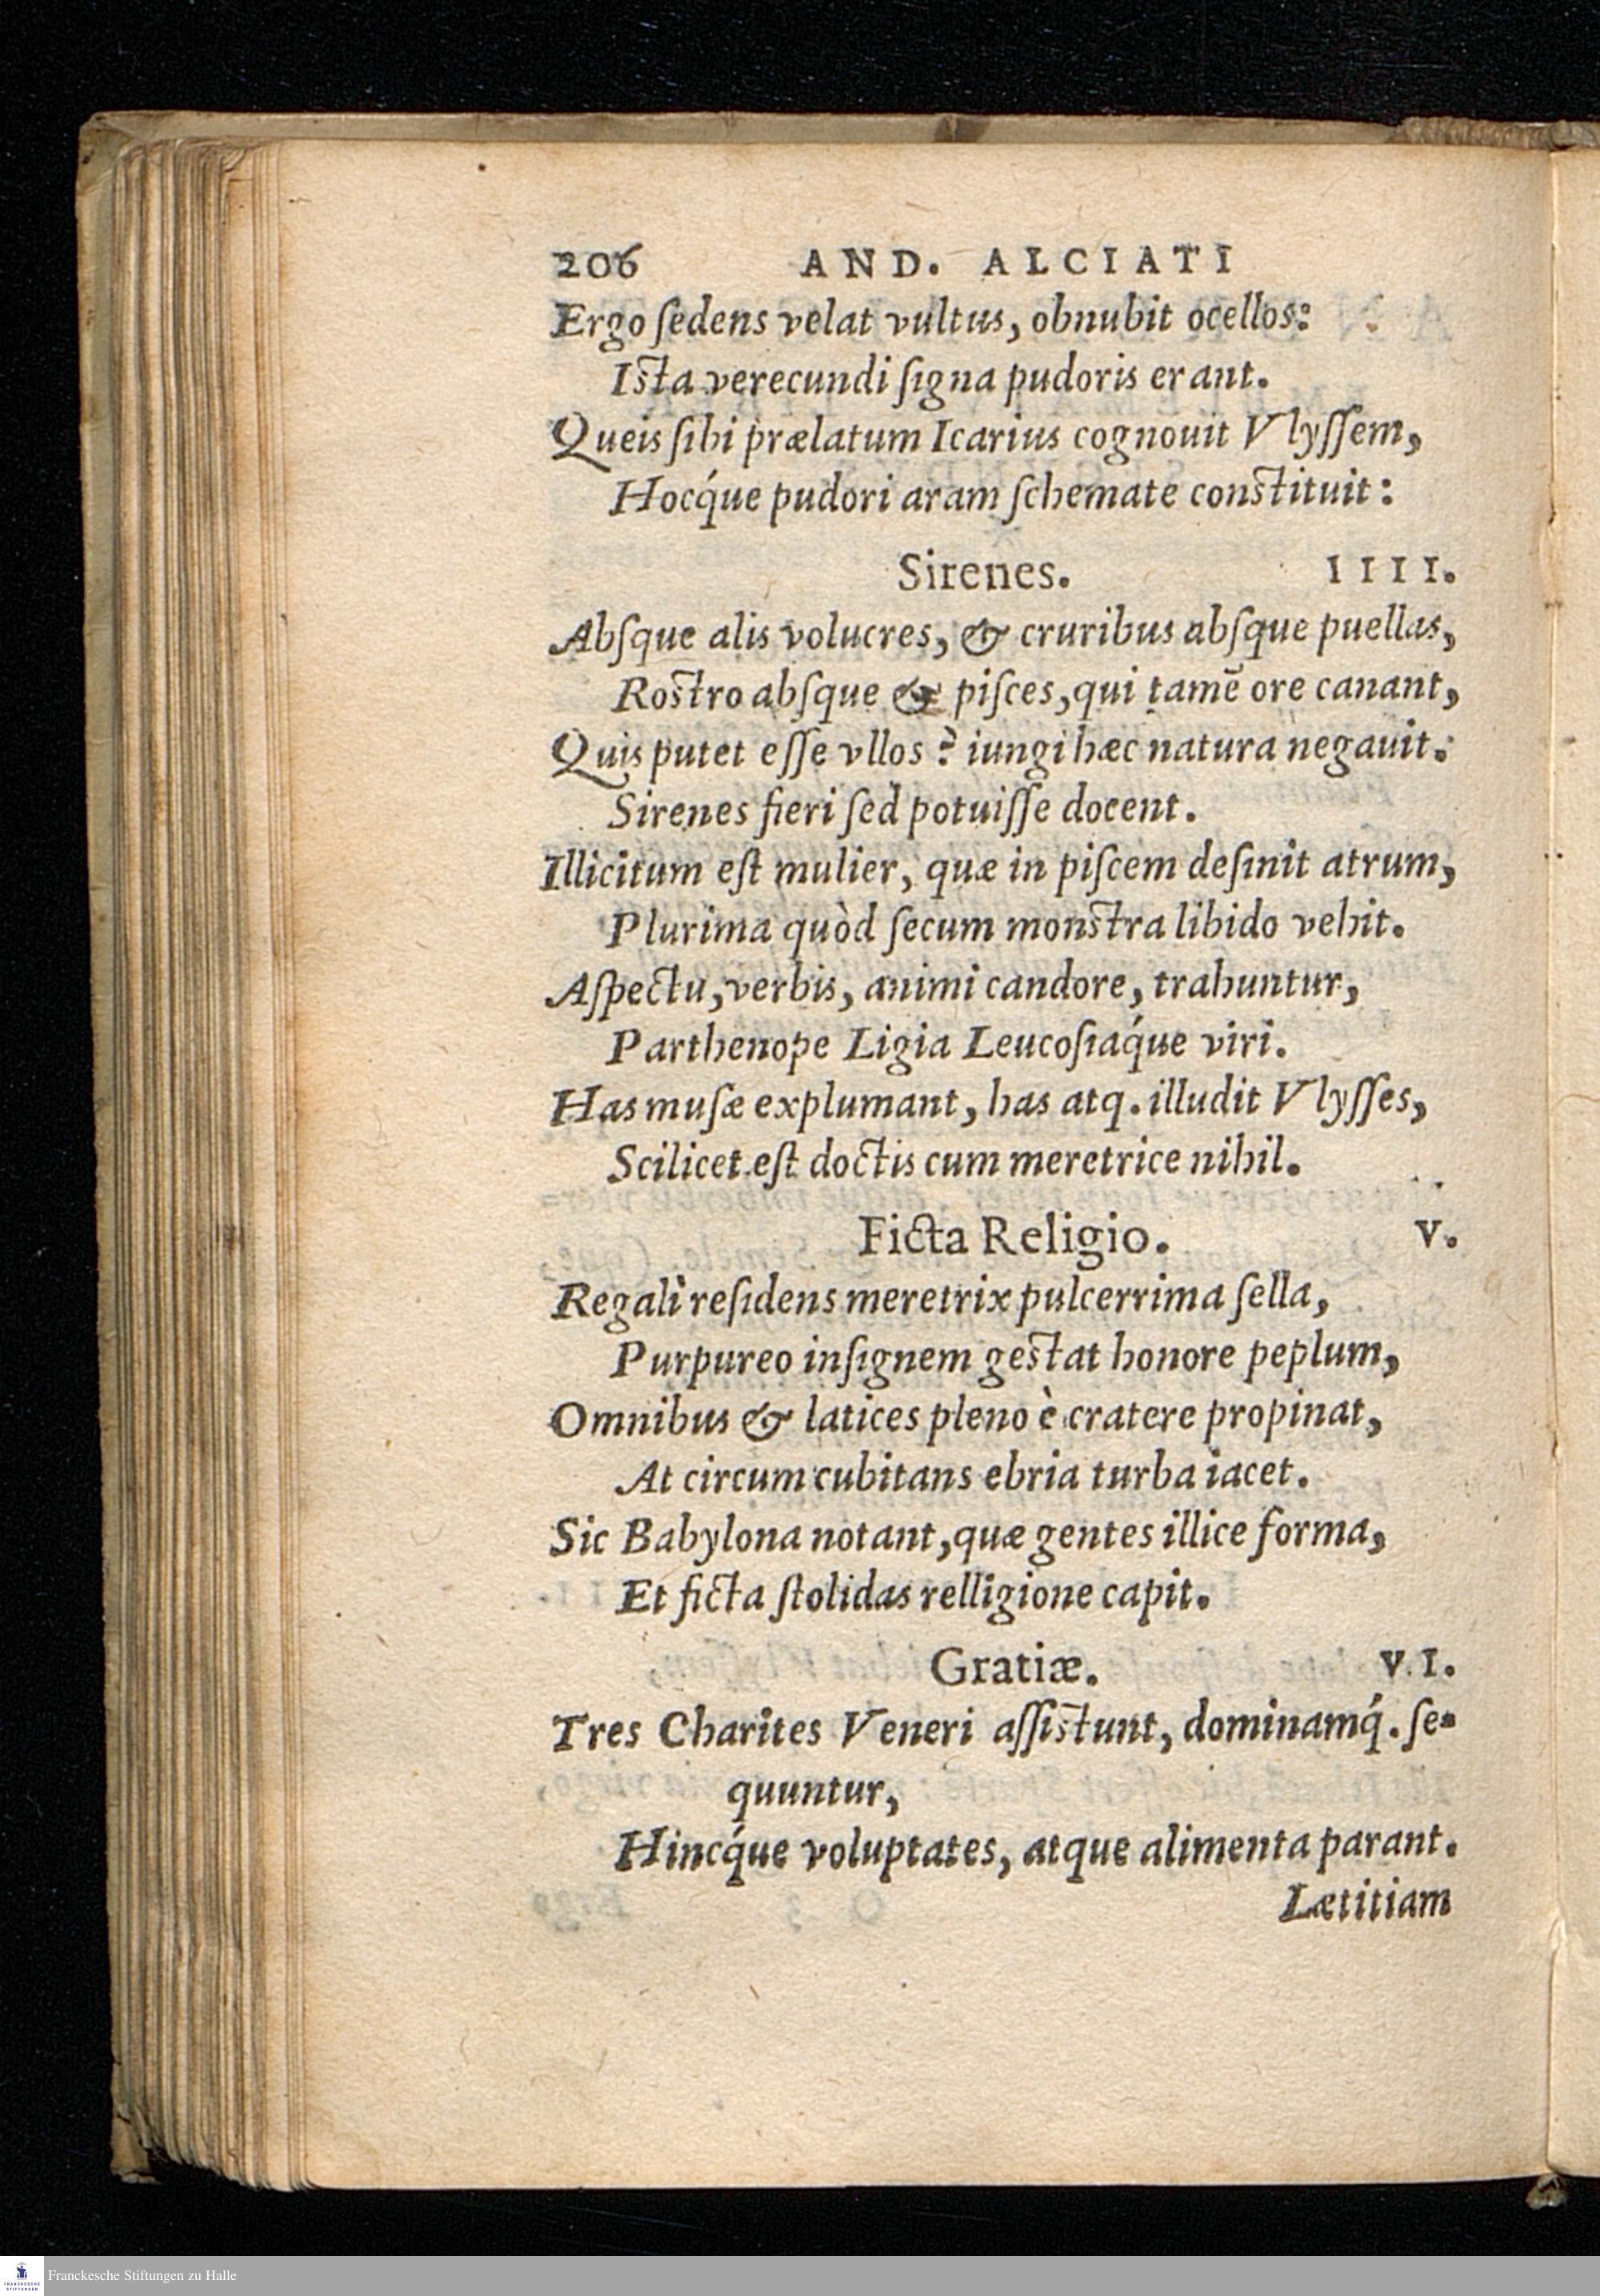 206 AND. ALCIATI
Ergo ſedens velat vultus, obnubit ocellos:
Iſta verecundi ſigna pudoris erant.
Queis ſibi prælatum Icarius cognouit Vlyſſem,
Hocq́ue pudori aram ſchemate conſtituit:
Sirenes. IIII.
Abſque alis volucres, & cruribus abſque puellas,
Roſtro abſque & piſces, qui tamē ore canant,
Quis putet eſſe vllos? iungi hæc natura negauit:
Sirenes fieri ſed potuiſſe docent.
Illicitum eſt mulier, quæ in piſcem deſinit atrum,
Plurima quòd ſecum monſtra libido vehit.
Aſpectu, verbis, animi candore, trahuntur,
Parthenope Ligia Leucoſiaq́ue viri.
Has muſæ explumant, has atq. illudit Vlyſſes,
Scilicet eſt doctis cum meretrice nihil.
Ficta Religio. V.
Regali reſidens meretrix pulcerrima ſella,
Purpureo inſignem geſtat honore peplum,
Omnibus & latices pleno è cratere propinat,
At circum cubitans ebria turba iacet.
Sic Babylona notant, quæ gentes illice forma,
Et ficta ſtolidas relligione capit.
Gratiæ. VI.
Tres Charites Veneri aſſiſtunt, dominamq́. ſe-
quuntur,
Hincq́ue voluptates, atque alimenta parant.
Lætitiam
FRANCKESCHE STIFTUNGEN
Franckesche Stiftungen zu Halle